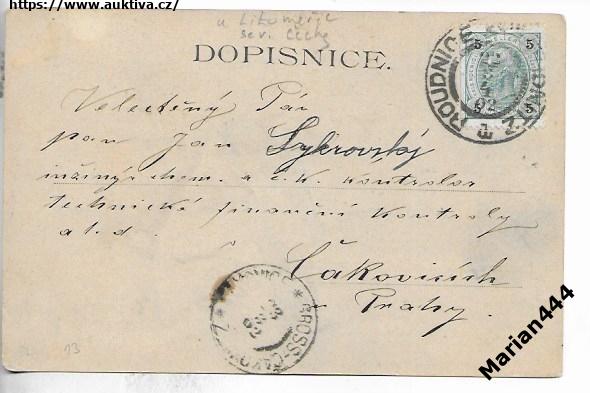 https://www.auktiva.cz/
u Litoměřic
sev. Čechy
DOPISNICE.
5 5
5 5
ROUDNICE
Velectěný Pán
pan Jan Sykrovský
inžinýr chem. a c.k. kontrolor
technické finanční kontroly
a t. d.
v Čakovicích
u Prahy.
GROSS-ČAKOWITZ
13
Marian444